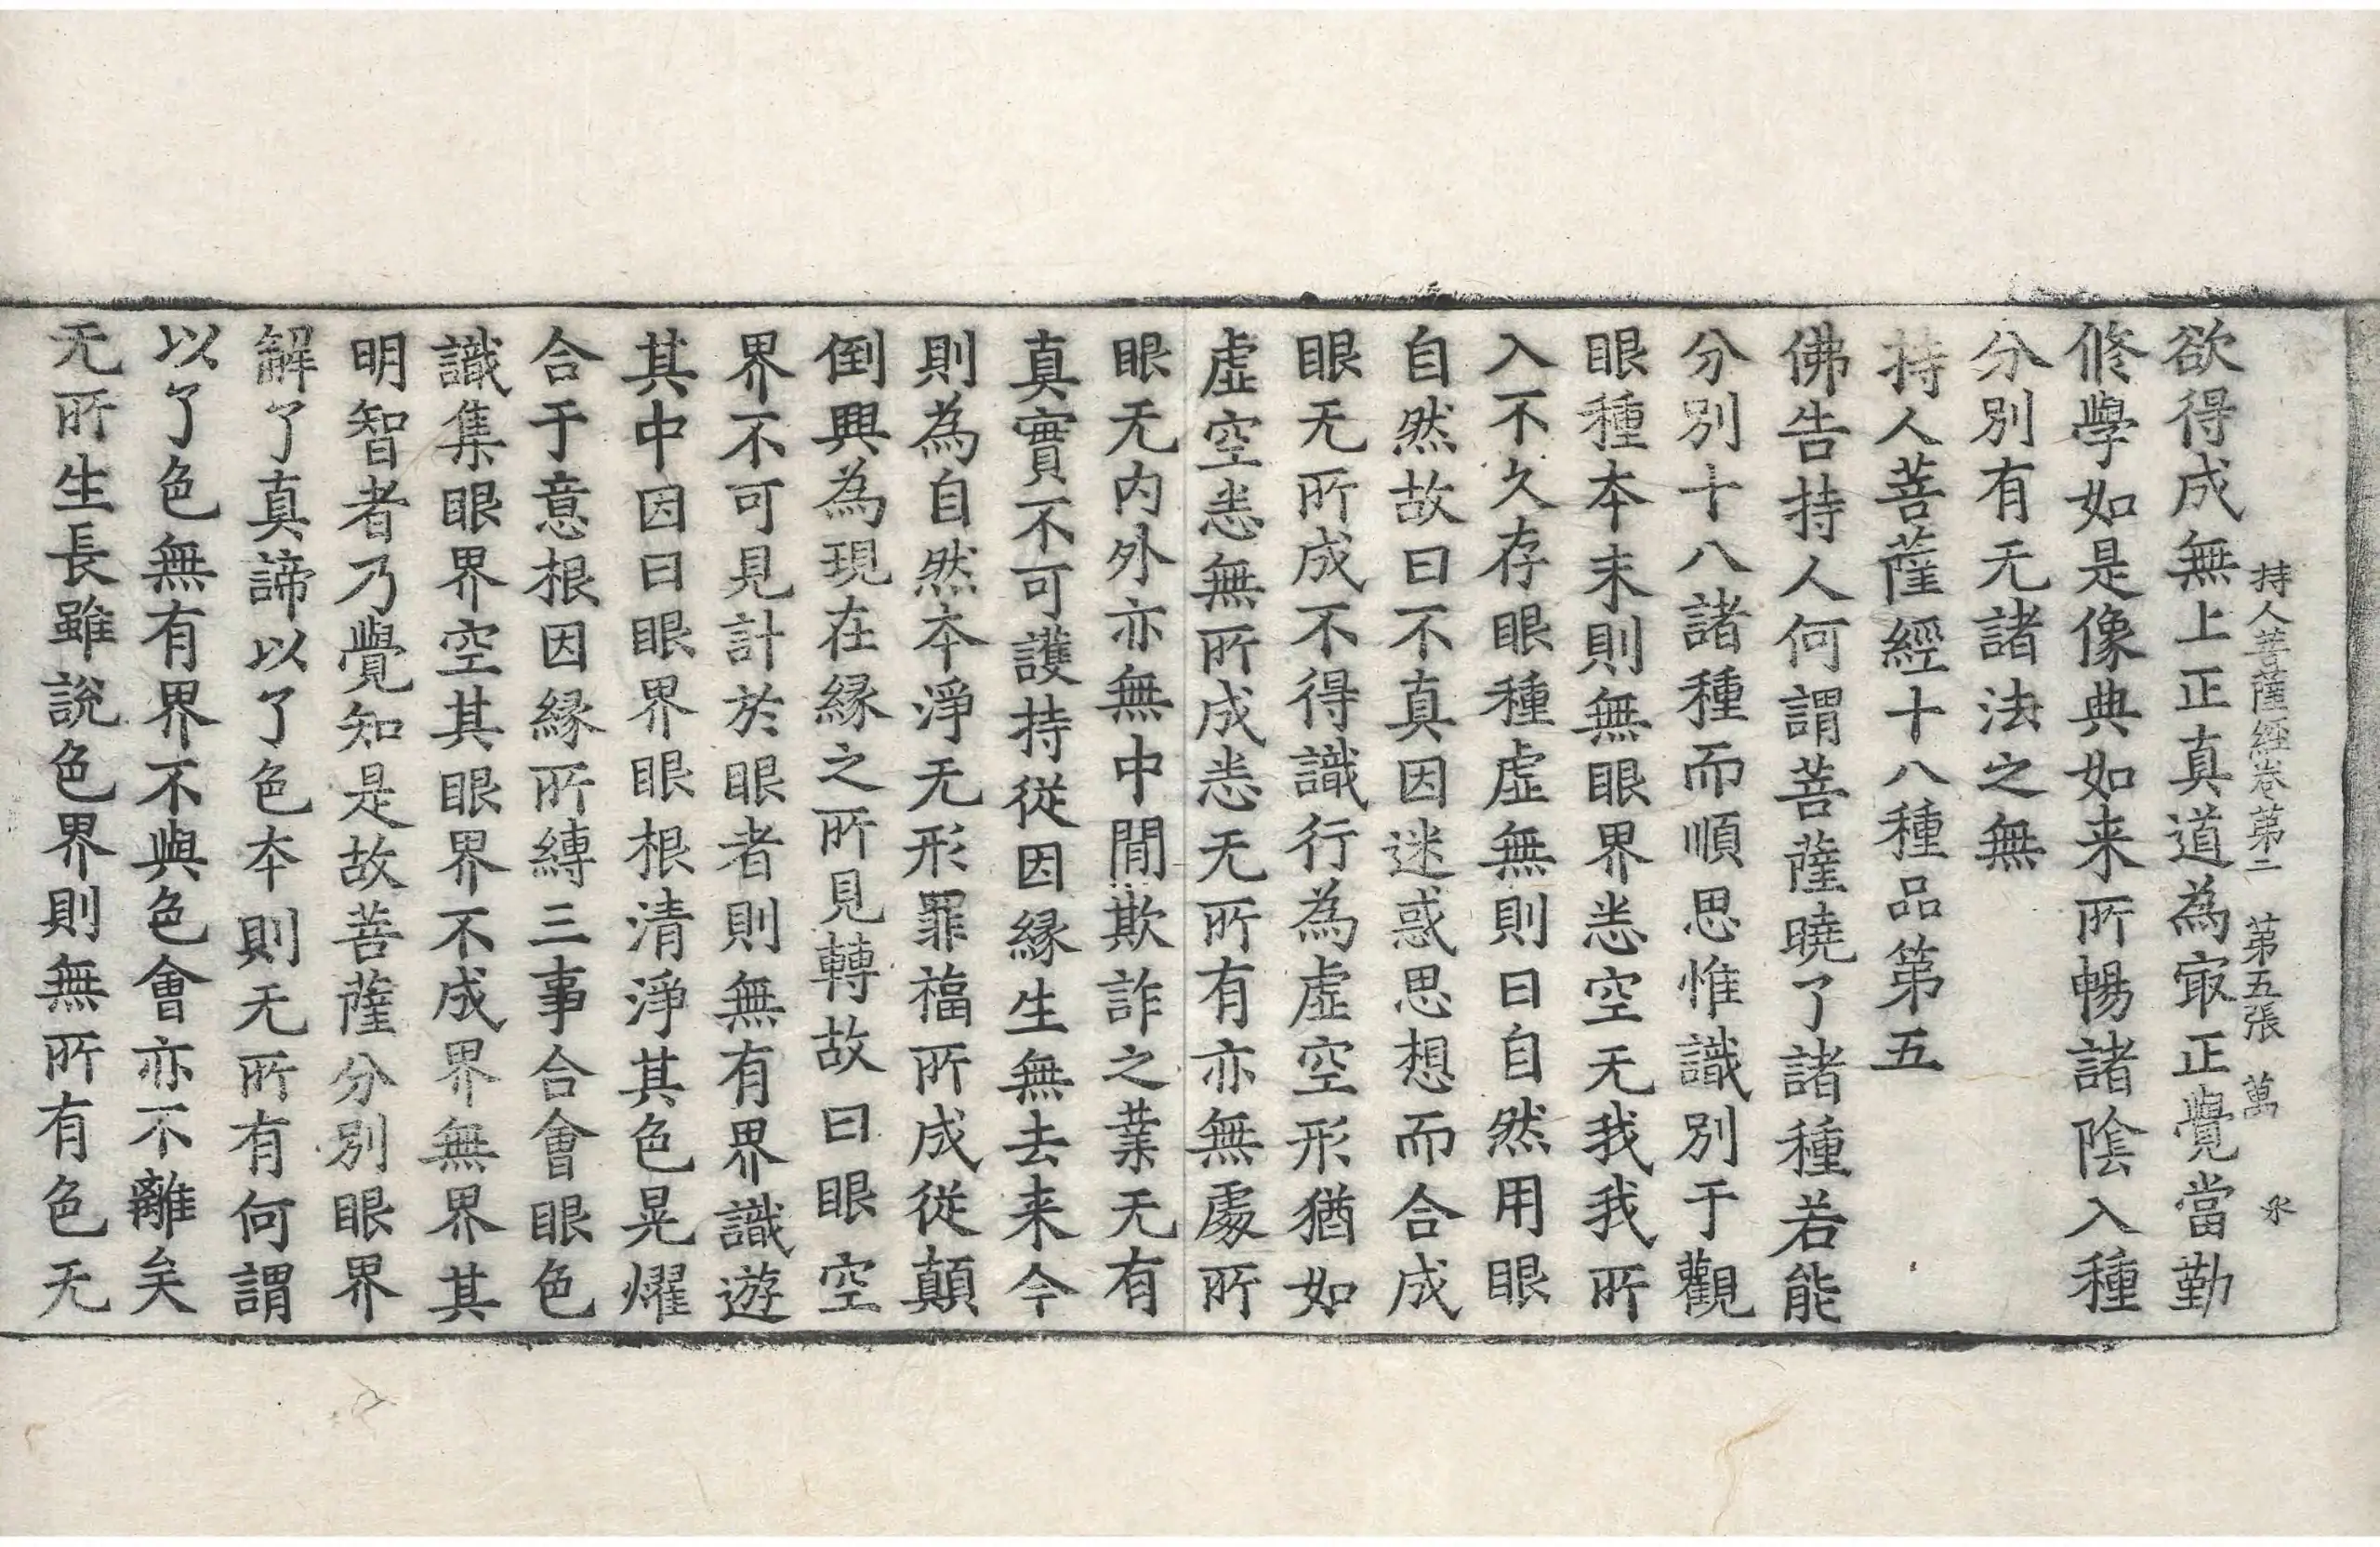 持人菩薩經卷第二　第五張　萬　氷
欲得成無上正真道為㝡正覺當勤
修學如是像典如来所暢諸陰入種
分別有无諸法之無
持人菩薩經十八種品第五
佛告持人何謂菩薩曉了諸種若能
分別十八諸種而順思惟識別于觀
眼種夲末則無眼界悉空无我我所
入不久存眼種虛無則曰自然用眼
自然故曰不真因迷惑思想而合成
眼无所成不得識行為虛空形猶如
虛空悉無所成悉无所有亦無處所
眼无內外亦無中間欺詐之業无有
真實不可護持從因縁生無去来今
則為自然夲淨无形罪福所成從顛
倒興為現在縁之所見轉故曰眼空
界不可見計於眼者則無有界識遊
其中因曰眼界眼根清淨其色晃燿
合于意根因縁所縛三事合會眼色
識集眼界空其眼界不成界無界其
明智者乃覺知是故菩薩分別眼界
解了真諦以了色夲則无所有何謂
以了色無有界不與色會亦不離矣
无所生長雖說色界則無所有色无